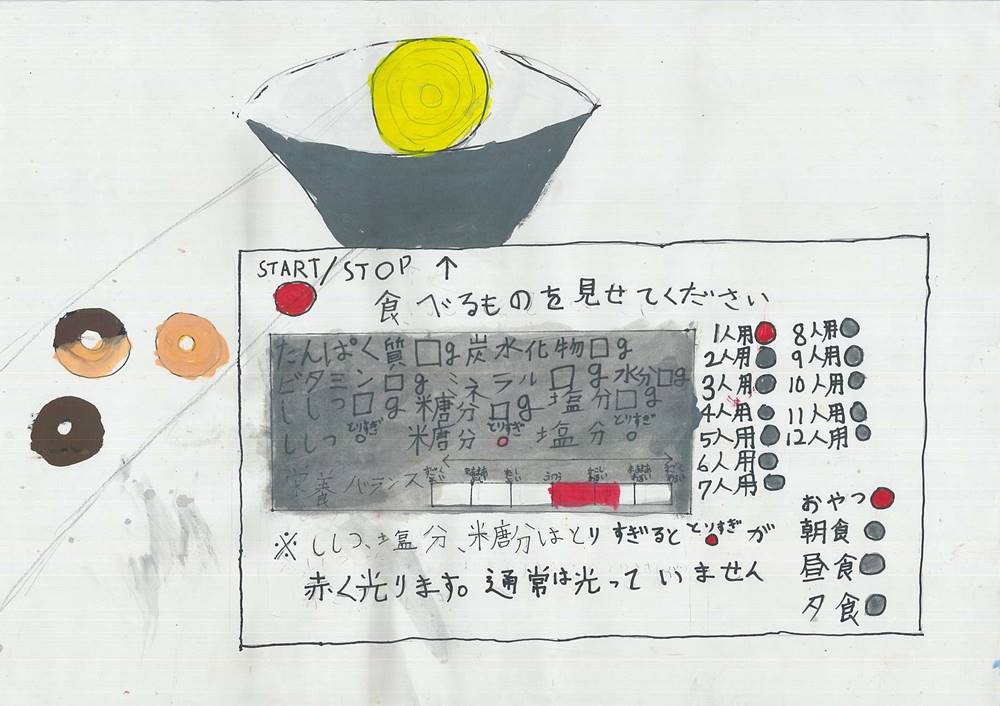 START/STOP ↑
食べるものを見せてください
たんぱく質□g 炭水化物□g
ビタミン□g ミネラル□g 水分□g
ししつ□g 糖分□g 塩分□g
とりすぎ とりすぎ とりすぎ
ししつ○ 糖分○ 塩分○
ふつう
栄養バランス
※ししつ、塩分、糖分はとりすぎるととりすぎ●が
赤く光ります。通常は光っていません
1人用
2人用
3人用
4人用
5人用
6人用
7人用
8人用
9人用
10人用
11人用
12人用
おやつ
朝食
昼食
夕食